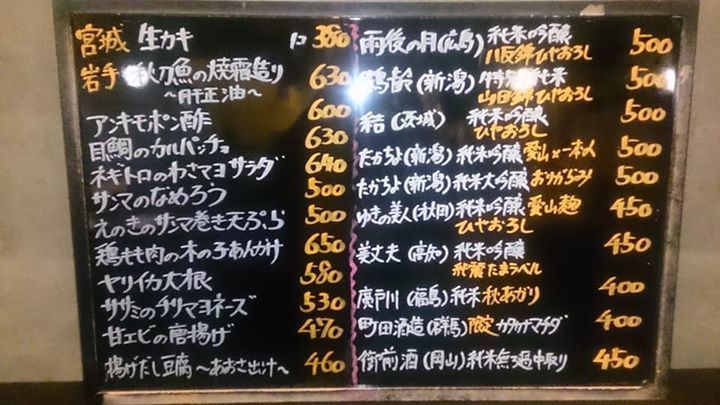 宮城 生カキ 1コ 380
岩手 秋刀魚の焼霜造り 630
〜肝正油〜
アンキモポン酢 600
目鯛のカルパッチョ 630
ネギトロのわさマヨサラダ 640
サンマのなめろう 500
えのきのサンマ巻き天ぷら 500
鶏もも肉の木の子あんかけ 650
ヤリイカ大根 580
ササミのチリマヨネーズ 530
甘エビの唐揚げ 470
揚げだし豆腐〜あおさ出汁〜 460
雨後の月(広島) 純米吟醸 500
八反錦ひやおろし
鶴齢(新潟) 特別純米 500
山田錦ひやおろし
結(茨城) 純米吟醸 500
ひやおろし
たかちよ(新潟)純米吟醸 愛山×一本〆 500
たかちよ(新潟)純米大吟醸 おりがらみ 500
ゆきの美人(秋田)純米吟醸 愛山麹 450
ひやおろし
美丈夫(高知) 純米吟醸 450
純麗たまラベル
廣戸川(福島)純米 秋あがり 400
町田酒造(群馬)限定 カタカナマチダ 400
御前酒(岡山)純米無ろ過中取り 450